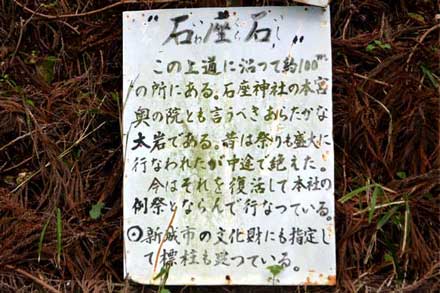 "石座石"
いわくらいし
この上道に沿って約100m
の所にある。石座神社の本宮
奥の院とも言うべきあらたかな
大岩である。昔は祭りも盛大に
行なわれたが中途で絶えた。
今はそれを復活して本社の
例祭とならんで行なっている。
⦿新城市の文化財にも指定し
て標柱も建っている。